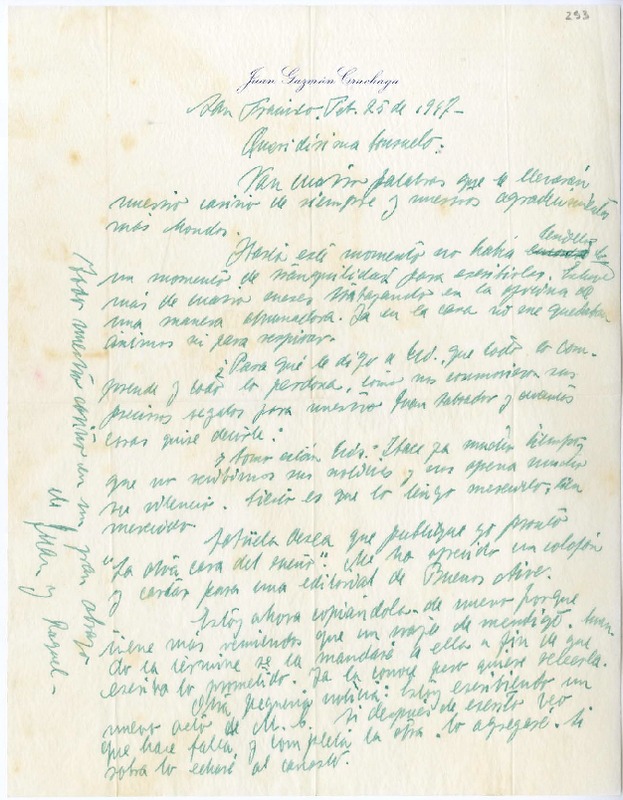 293
Juan Guzmán Cruchaga
San Francisco, Oct. 25 de 1947-
Queridísima Consuelo:
Van cuatro palabras que le llevarán
nuestro cariño de siempre y nuestros agradecimientos
más hondos.
Hasta este momento no había
un momento de tranquilidad para escribirles.
más de cuatro meses trabajando en la oficina de
una manera abrumadora. Ya en la casa no me quedaban
ánimos ni para respirar.
¿Para qué le digo a Ud., que todo lo com-
prende y todo lo perdona, cómo nos conmovieron sus
preciosos regalos para nuestro Juan Salvador y cuántas
cosas quise decirle?
y cómo están Uds.? Hace ya mucho tiempo
que no recibimos sus noticias y nos apena mucho
su silencio. Cierto es que lo tengo merecido, bien
merecido.
desea que publique yo pronto
"La otra cara del sueño". Me ha ofrecido un colofón
y cartas para una editorial de Buenos Aires.
Estoy ahora copiándola de nuevo porque
tiene más remiendos que un traje de mendigo. Cuan-
do la termine se la mandaré a ella a fin de que
escriba lo prometido. Ya la conoce pero quiere releerla.
Otra pequeña noticia: Estoy escribiendo un
nuevo acto de M. S. Si después de escrito veo
que hace falta y completa la obra lo agregaré. Si
sobra lo echaré al canasto.
Todo nuestro cariño en un gran abrazo
de Juan y Raquel-